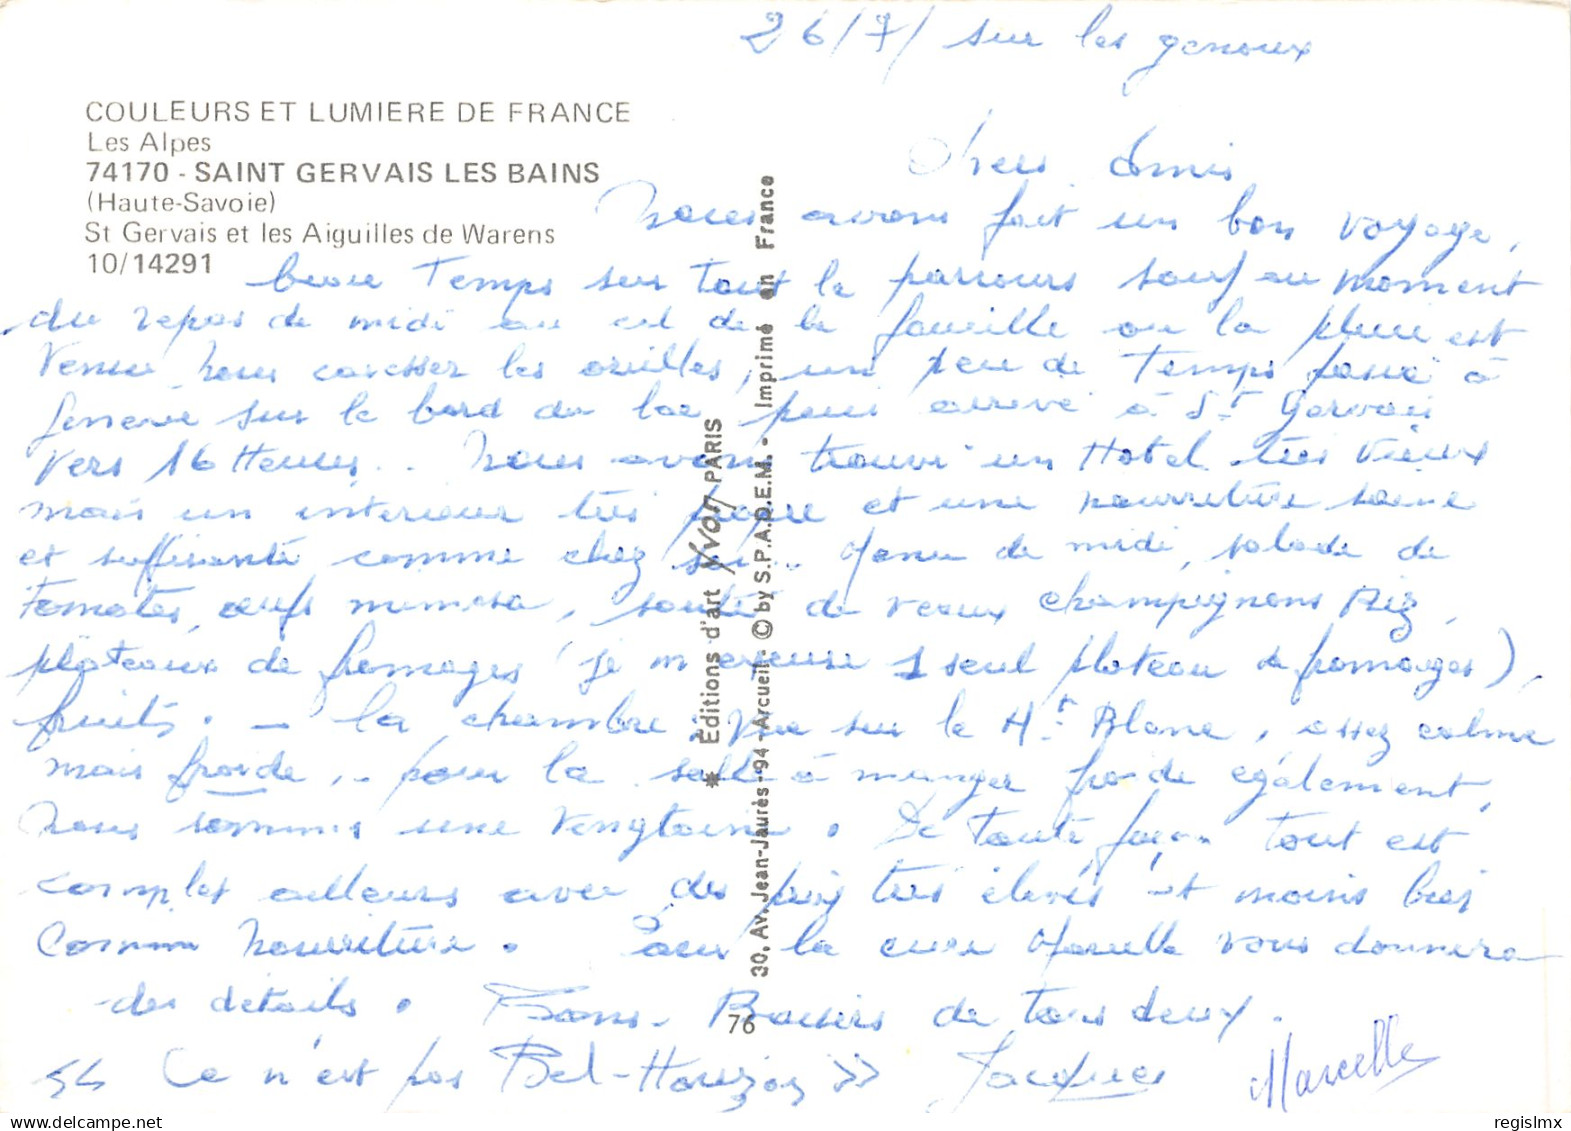 26/7/ sur les genoux
COULEURS ET LUMIERE DE FRANCE
Les Alpes
74170 - SAINT GERVAIS LES BAINS
(Haute-Savoie)
St Gervais et les Aiguilles de Warens
10/14291
Chers Amis
Nous avons fait un bon voyage,
beau Temps sur tout le parcours sauf au moment
du repas de midi au col de la faucille ou la pluie est
venue nous caresser les oreilles, un peu de Temps passé à
Geneve sur le bord du lac, puis arrivé à St Gervais
vers 16 Heures.. Nous avons trouvé un Hotel très vieux
mais un interieur très propre et une nourriture saine
et suffisante comme chez soi.. Menu de midi, salade de
Tomates, œufs mimosa, sauté de veaux champignons Riz,
plateaux de fromages (je m'excuse 1 seul plateau de fromages),
fruits. - la chambre, vue sur le Mt Blanc, assez calme
mais froide, .. pour la salle à manger froide également,
nous sommes une vingtaine. De toute façon tout est
complet ailleurs avec des prix très élevés et moins bien
comme nourriture. Pour la cure Marcelle vous donnera
des détails. Bons Baisers de tous deux.
<< Ce n'est pas Bel-Horizon >> Jacques Marcelle
* Éditions d'art Yvon PARIS
30, Av. Jean-Jaurès - 94 - Arcueil - © by S.P.A.D.E.M. - Imprimé en France
76
regislmx